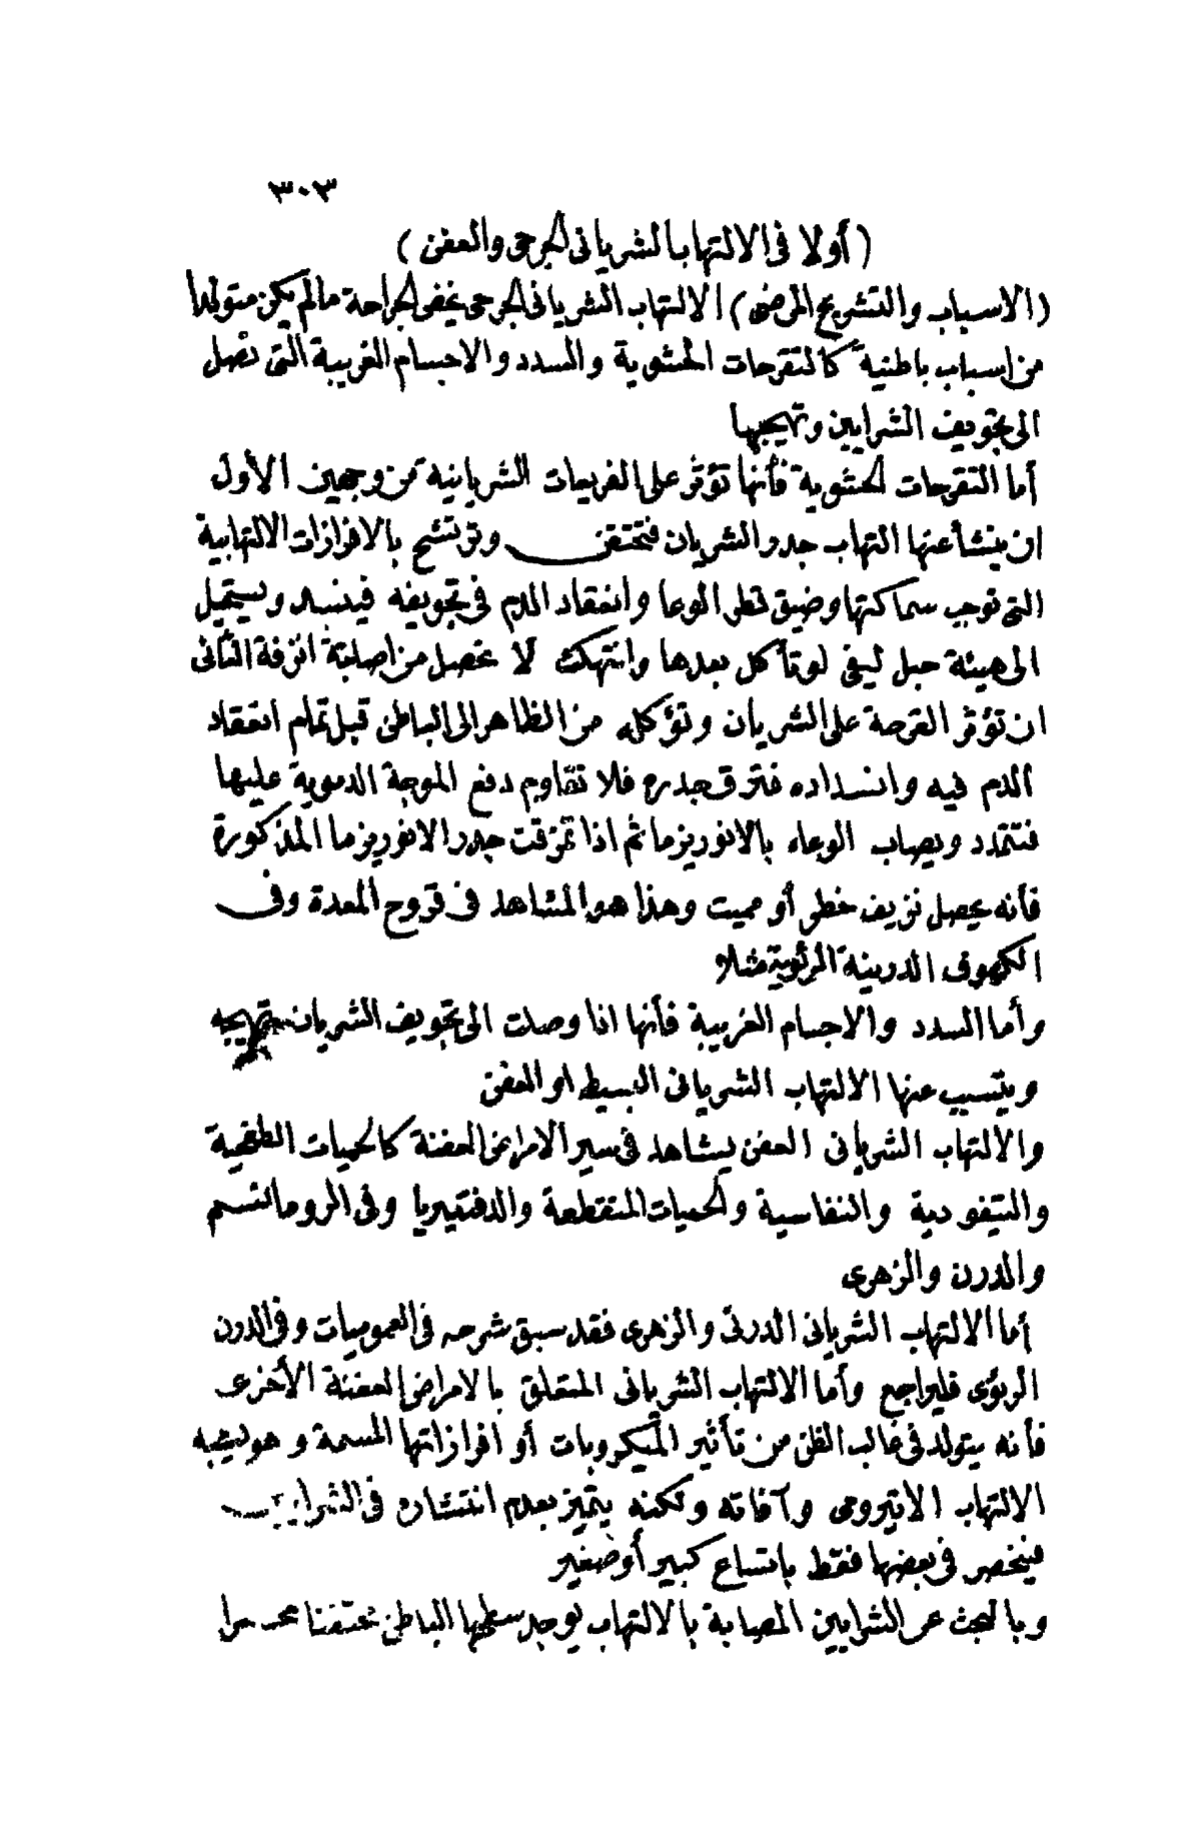 ٣٠٣
(أولا فى الالتهاب الشريانى الجرحى والعفن)
(الاسباب والتشريح المرضى) الالتهاب الشريانى الجرحى يخص الجراحة مالم يكن متولدا
من اسباب باطنية كالتقرحات الحشوية والسدد والاجسام الغريبة التى تصل
الى تجويف الشرايين وتهيجها
أما التقرحات الحشوية فأنها تؤثر على الفريعات الشريانية من وجهين الأول
ان ينشأ عنها التهاب جدر الشريان فتحتقن وترتشح بالافرازات الالتهابية
التى توجب سماكتها وضيق قطر الوعا وانعقاد الدم فى تجويفه فينسد ويستحيل
الى هيئة حبل ليفى لو تأكل بعدها وانتهك لا يحصل من اصابته انزفة الثانى
ان تؤثر القرحة على الشريان وتؤكله من الظاهر الى الباطن قبل تمام انعقاد
الدم فيه وانسداده فترق جدره فلا تقاوم دفع الموجة الدموية عليها
فتتمدد ويصاب الوعاء بالانوريزما ثم اذا تمزقت جدر الانوريزما المذكورة
فأنه يحصل نزيف خطر أو مميت وهذا هو المشاهد فى قروح المعدة وفى
الكهوف الدرينة الرئوية مثلا
وأما السدد والاجسام الغريبة فأنها اذا وصلت الى تجويف الشريان تهيجه
ويتسبب عنها الالتهاب الشريانى البسيط او العفن
والالتهاب الشريانى العفن يشاهد فى سير الامراض العفنة كالحميات الطفحية
والتيفودية والنفاسية والحميات المتقطعة والدفتيريا وفى الروماتسم
والدرن والزهرى
أما الالتهاب الشريانى الدرنى والزهرى فقد سبق شرحه فى العموميات وفى الدرن
الرئوى فليراجع وأما الالتهاب الشريانى المتعلق بالامراض العفنة الأخرى
فأنه يتولد فى غالب الظن من تأثير الميكروبات أو افرازاتها المسمة وهو يشبه
الالتهاب الاتيرومى وآفاته ولكنه يتميز بعدم انتشاره فى الشرايين
فينحصر فى بعضها فقط باتساع كبير أو صغير
وبالبحث عن الشرايين المصابة بالالتهاب يوجد سطحها الباطن محتقنا محمرا